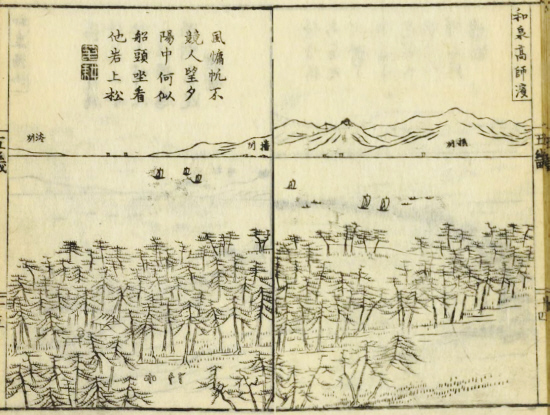 和泉高師濱
風慵帆不
競人望夕
陽中何似
船頭坐看
他岩上松
攝州
播州
淡州
五畿
五畿